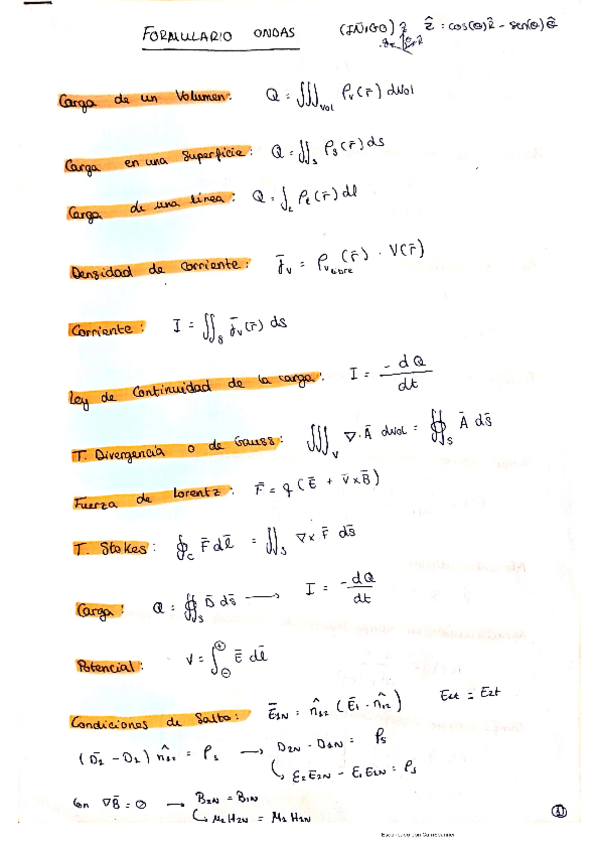 FORMULARIO ONDAS
(IÑIGO) ẑ : cos(θ) R̂ - sen(θ) θ̂
Carga de un Volumen: Q = ∭_Vol ρ_v(r̄) dVol
Carga en una superficie: Q = ∬_S ρ_s(r̄) ds
Carga de una línea: Q = ∫_L ρ_l(r̄) dl
Densidad de corriente: J̄_v = ρ_v libre(r̄) · V(r̄)
Corriente: I = ∬_S J̄_v(r̄) ds
Ley de Continuidad de la carga: I = -dQ/dt
T. Divergencia o de Gauss: ∭_V ∇·Ā dVol = ∯_S Ā ds̄
Fuerza de Lorentz: F̄ = q(Ē + v̄ x B̄)
T. Stokes: ∮_C F̄ dl̄ = ∬_S ∇x F̄ ds̄
Carga: Q = ∯_S D̄ ds̄ → I = -dQ/dt
Potencial: V = ∫_⊖^⊕ Ē dl̄
Condiciones de Salto: Ē_1N = n̂_12 (Ē_1 · n̂_12) E_1t = E_2t
(D̄_2 - D_1) n̂_12 = ρ_s → D_2N - D_1N = ρ_s
ε_2 E_2N - ε_1 E_1N = ρ_s
Con ∇B̄ = 0 → B_2N = B_1N
μ_2 H_2N = μ_1 H_1N
Escaneado con CamScanner